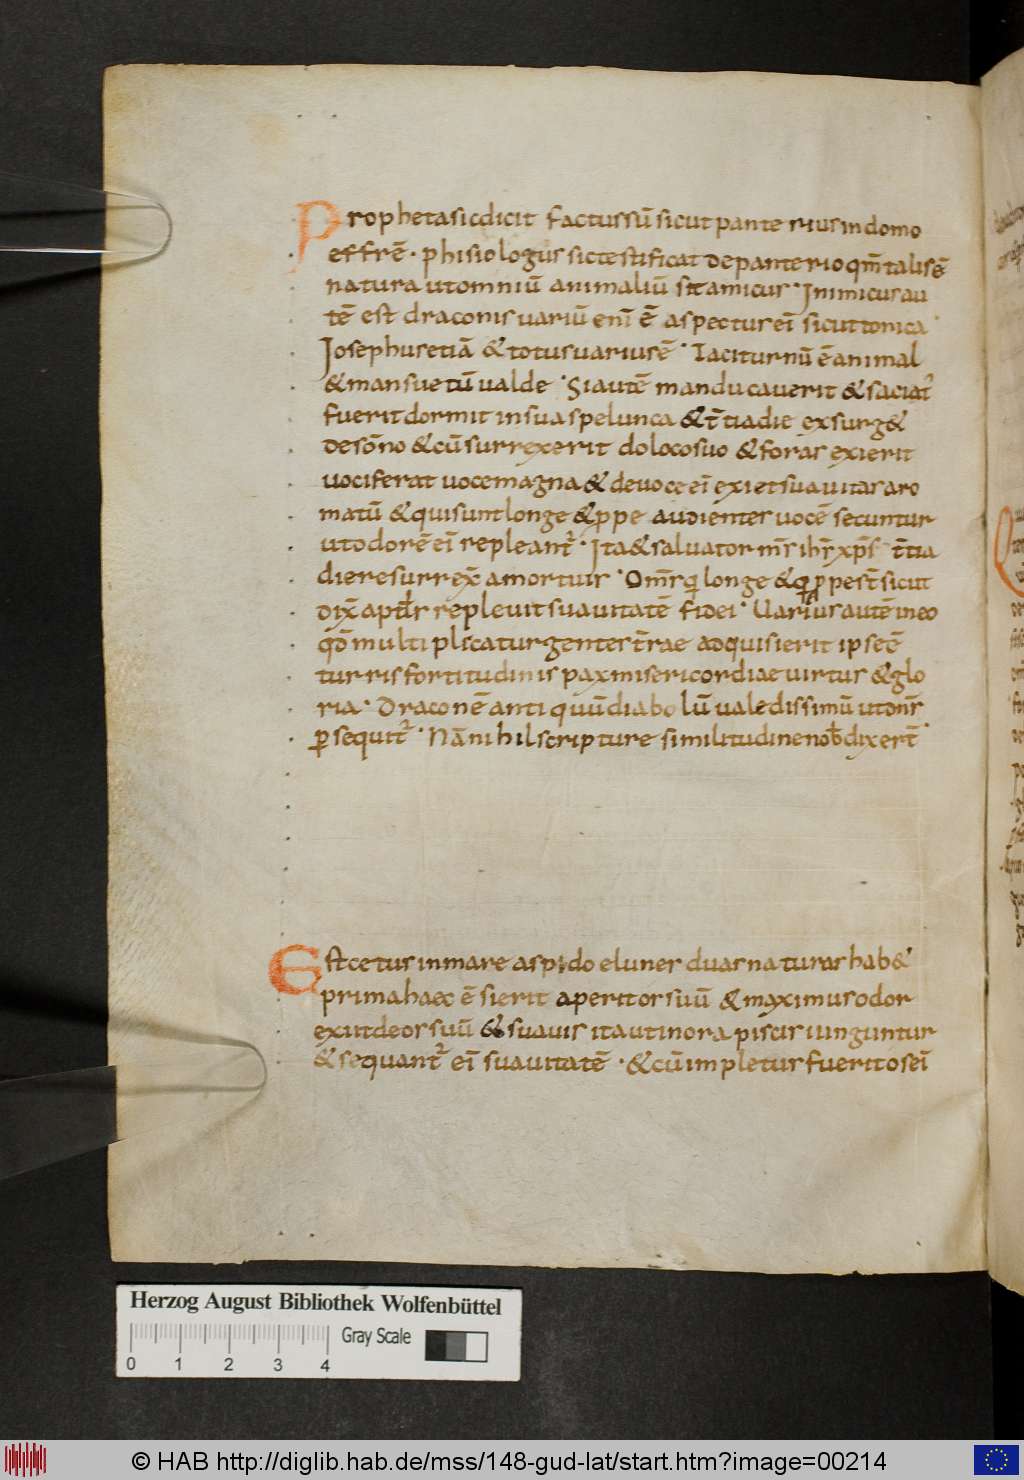 Propheta sic dicit factus sū sicut panterius in domo
effrē · phisiologus sic testificat de panterio qm̄ talis ē
natura ut omniū animaliū sit amicus · Inimicus au
tē est draconis uariū enī ē aspectus eī sicut tonica
Ioseph us etiā & totus uarius ē · Taciturnū ē animal
& mansuetū ualde · Si autē manducauerit & saciat᷒
fuerit dormit in sua spelunca & t̄tia die exsurg&
de sōno & cū surrexerit do loco suo & foras exierit
uociferat uoce magna & de uoce eī exiet suauitas aro
matū & qui sunt longe & ꝓpe audientes uocē secuntur
ut odorē eī repleant᷒ · Ita & saluator nr̄ ihs̄ xp̄s t̄tia
die resurrex̄ a mortuis · Om̄s q longe & q ꝓpe st̄ sicut
dix̄ aptl̄s repleuit suauitatē fidei · Uarius autē in eo
qd̄ multiplicatur gentes t̄rae adquisierit ipse ē
turris fortitudinis pax misericordiae uirtus & glo
ria · Draconē antiquū diabolū ualedissimū ut om̄s
ꝑsequit᷒ · Nā nihil scripture similitudine nob̄ dixert̄
Est cetus in mare aspido elunes duas naturas hab&
prima haec ē si erit aperit os suū & maximus odor
exiit de os suū & suauis ita ut inora piscis iunguntur
& sequant᷒ eī suauitatē · & cū impletus fuerit os eī
Herzog August Bibliothek Wolfenbüttel
Gray Scale
0 1 2 3 4
© HAB http://diglib.hab.de/mss/148-gud-lat/start.htm?image=00214